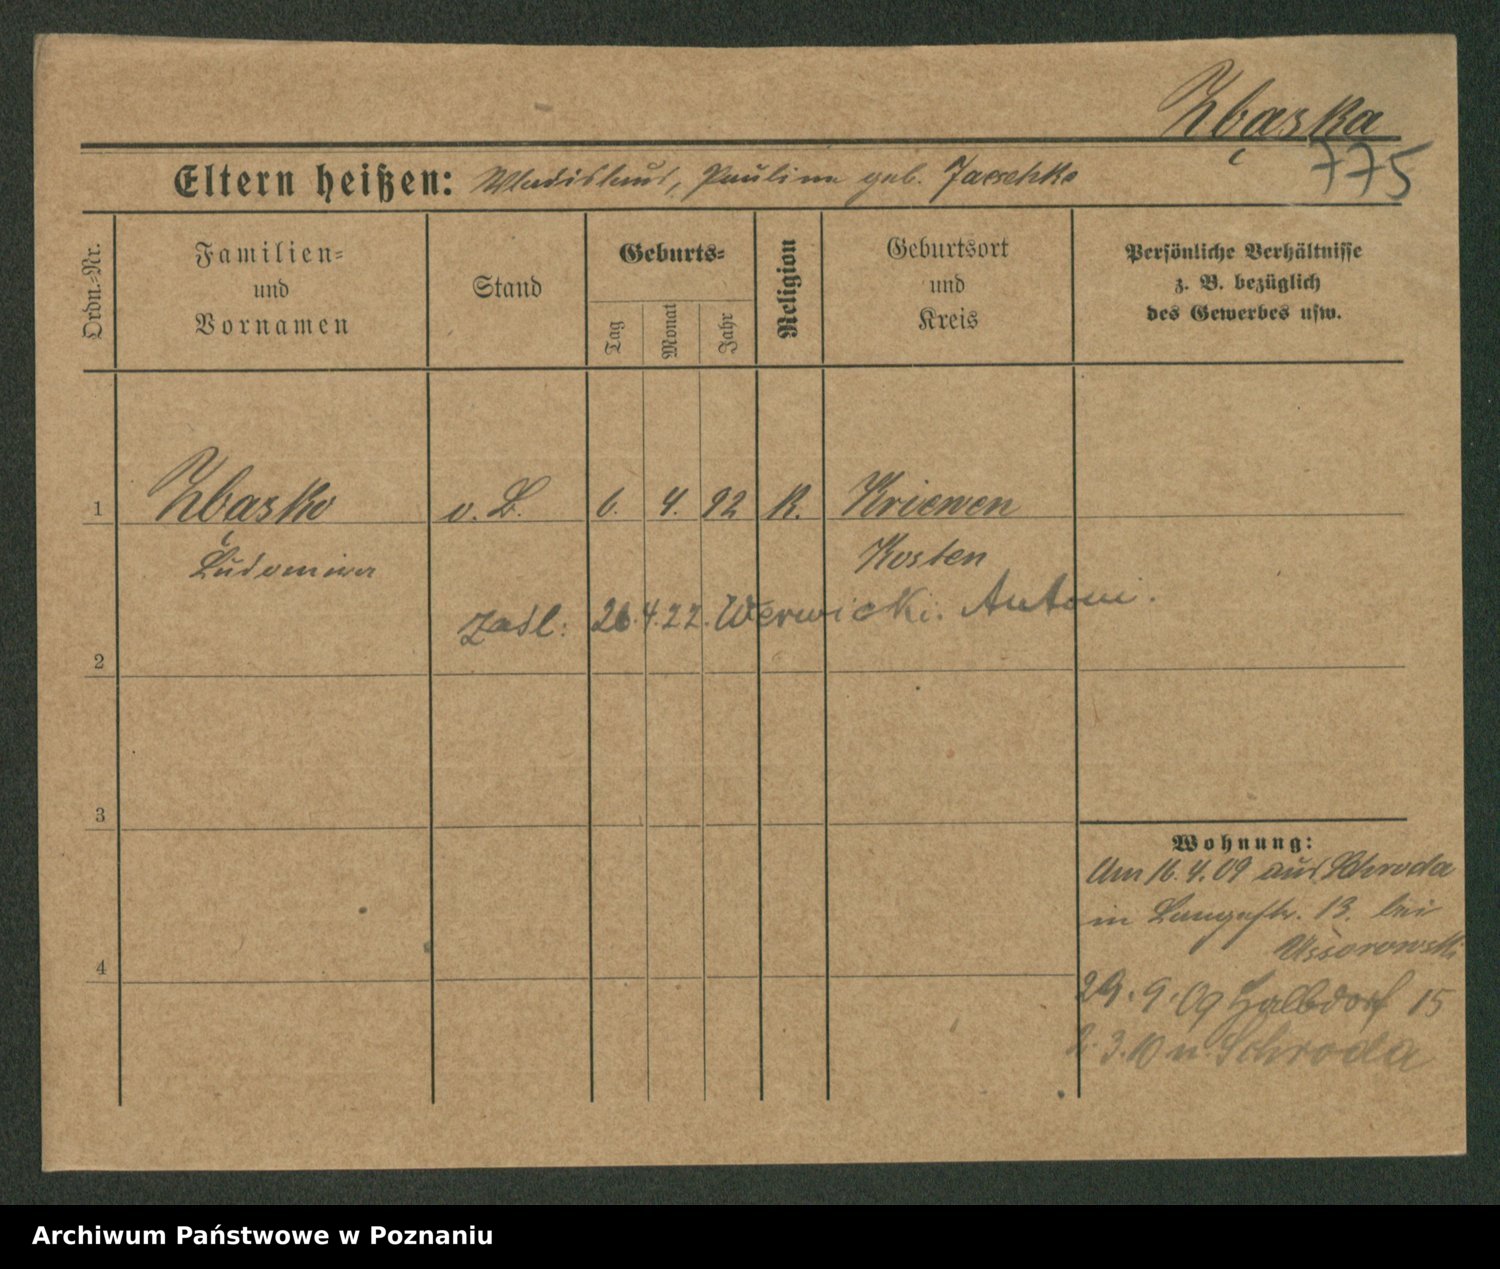 Zbaska
775
Eltern heißen: Wladislaus, Pauline geb. Jaeschke
Ordn.-Nr.
Familien-
und
Vornamen
Stand
Geburts-
Tag
Monat
Jahr
Religion
Geburtsort
und
Kreis
Persönliche Verhältnisse
z. B. bezüglich
des Gewerbes usw.
1 Zbaska o. B. 6. 4. 92 K. Kriewen
Ludomira Kosten
zasl: 26.4.22. Werwicki Antoni.
2
3
4
Wohnung:
Am 16.4.09 aus Schroda
in Langestr. 13. bei
29.9.09 Halbdorf 15
2.3.10 n. Schroda
Archiwum Państwowe w Poznaniu